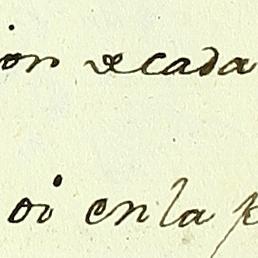 ion de cada
oi en la p